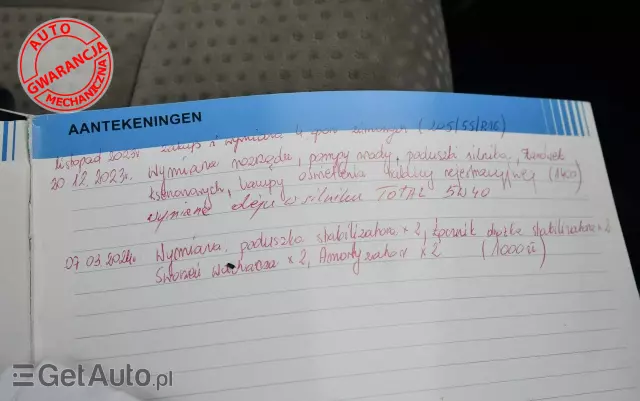 AUTO
GWARANCJA
MECHANICZNA
AANTEKENINGEN
listopad 2023r zakup i wymiana 4 opon zimowych (205/55/R16)
20.12.2023r. Wymiana rozrządu, pompy wody, poduszki silnika, żarówek
ksenonowych, lampy oświetlenia tablicy rejestracyjnej (1400)
wymiana oleju w silniku TOTAL 5W40
07 03 2024r. Wymiana poduszka stabilizatora x 2, łącznik drążka stabilizatora x 2
Sworzeń wahacza x 2, Amortyzator x 2 (1000zł)
GetAuto.pl